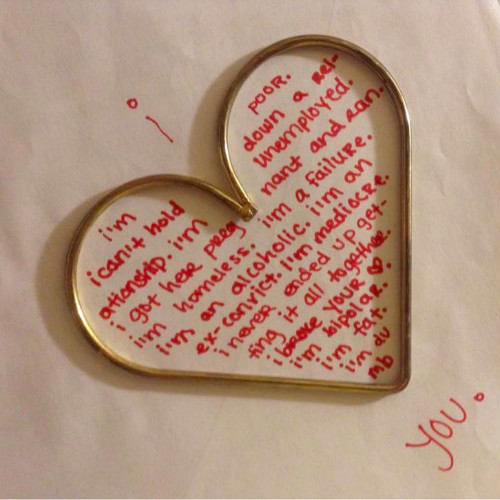 i
i'm poor.
i can't hold down a rel-
ationship. i'm unemployed.
i got her preg nant and ran.
i'm homeless. i'm a failure.
i'm an alcoholic. i'm an
ex-convict. i'm mediocre.
i never ended up get-
ting it all together.
i broke your ♥.
i'm bipolar.
i'm fat.
i'm du
mb
you.